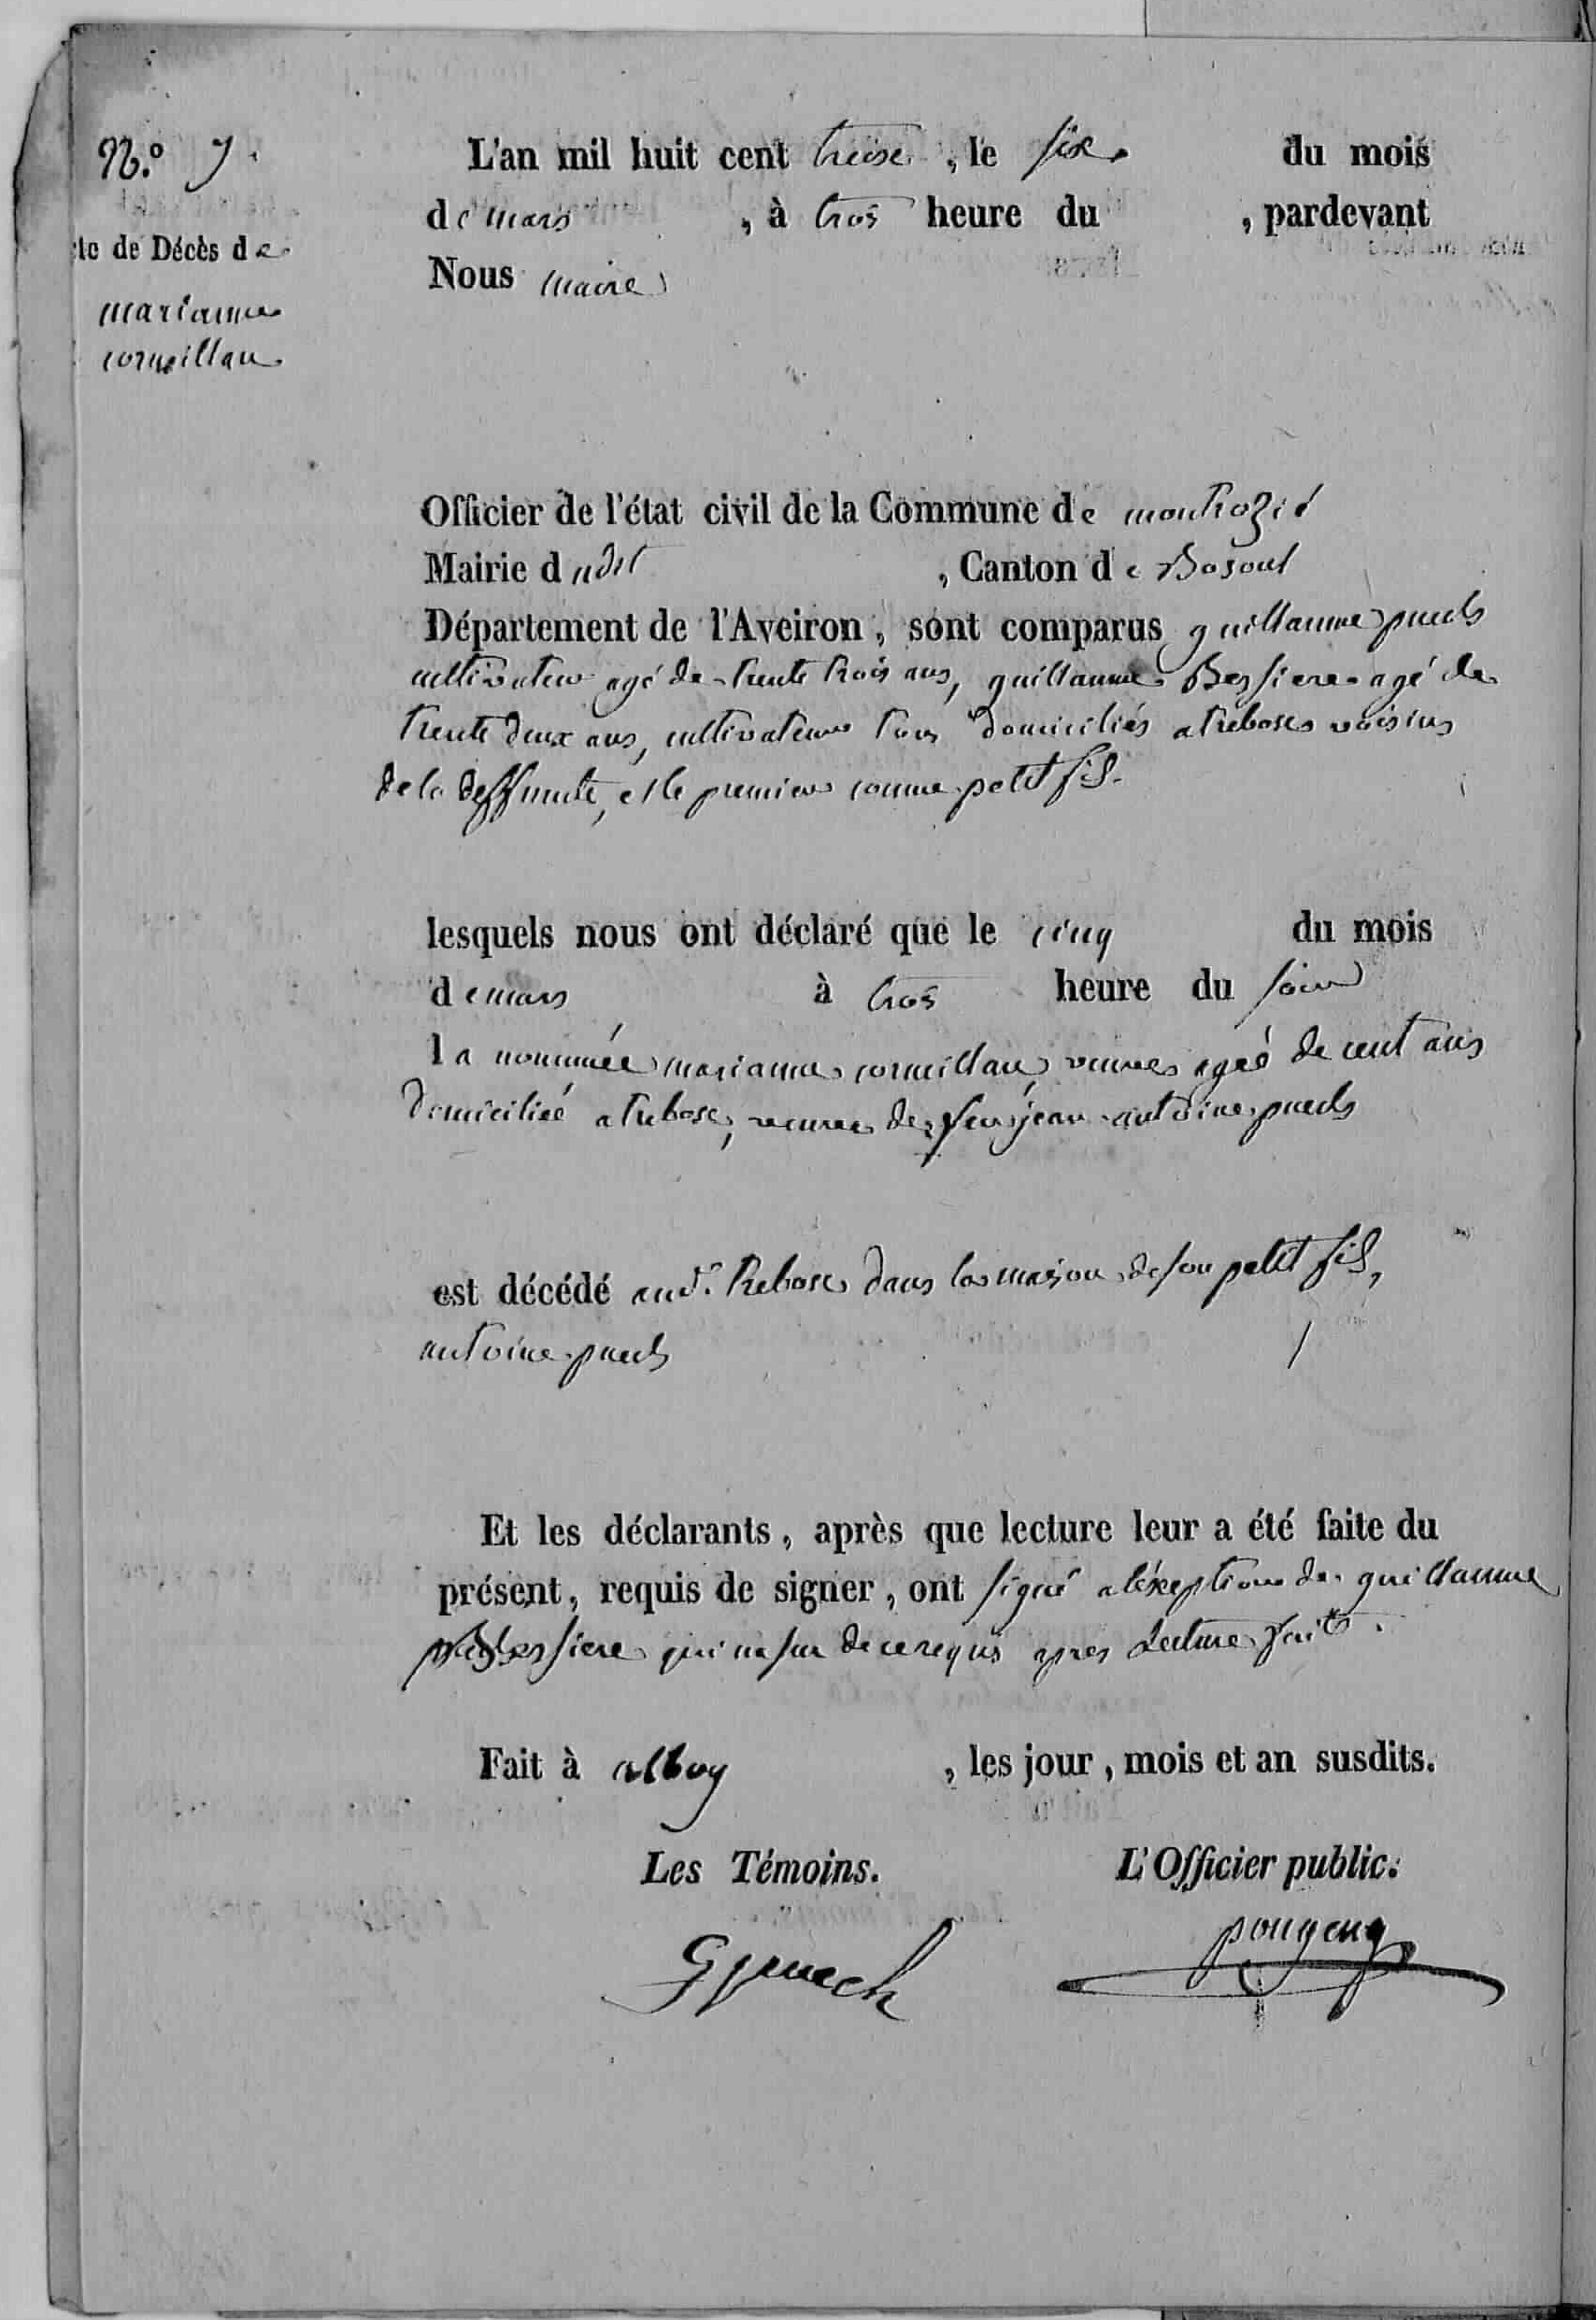 N.º 7.
te de Décès de
marianne
corneillan
L'an mil huit cent treise, le six du mois
de mars, à trois heure du , pardevant
Nous maire
Officier de l'état civil de la Commune de montrozié
Mairie dudit, Canton de Bosoul
Département de l'Aveiron, sont comparus guillaume puech
cultivateur agé de trente trois ans, guillaume Bessiere agé de
trente deux ans, cultivateur tous domiciliés a trebosc voisins
de la deffunte, et le premier comme petit fils.
lesquels nous ont déclaré que le cinq du mois
de mars à trois heure du soir
la nommée marianne corneillan, veuve agéé de cent ans
domiciliéé a trebosc, veuve de feu jean antoine puech
est décédé aud. trebosc dans la maison de son petit fils,
antoine puech
Et les déclarants, après que lecture leur a été faite du
présent, requis de signer, ont signé a léxeption de guillaume
bessiere qui na su de ce requis apres Lecture faite.
Fait à alboy, les jour, mois et an susdits.
Les Témoins. L'Officier public.
G puech pougenq